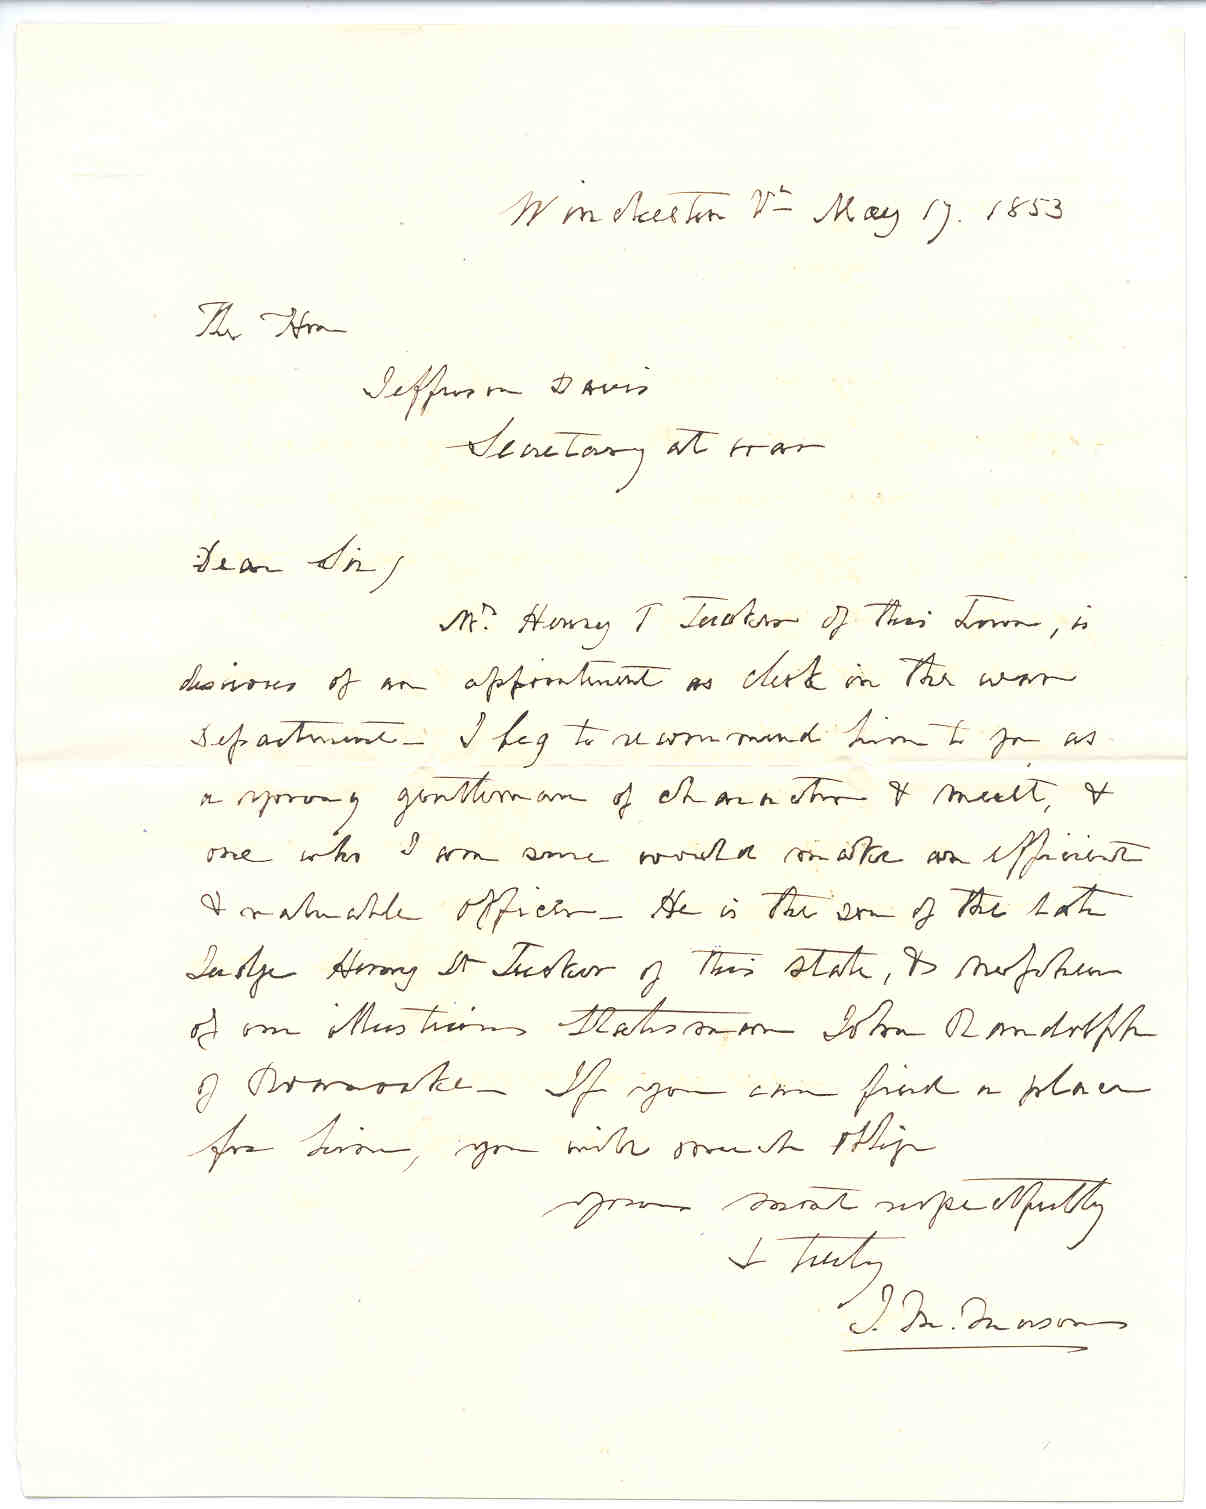 Winchester Va May 17. 1853
The Hon
Jefferson Davis
Secretary at war
Dear Sir,
Mr. Henry T Tucker of this Town, is
desirous of an appointment as clerk in the war
Department— I beg to recommend him to you as
a young gentleman of character & merit, &
one who I am sure would make an efficient
& valuable officer— He is the son of the late
Judge Henry St Tucker of this state, & nephew
of our illustrious Statesman John Randolph
of Roanoake— If you can find a place
for him, you will much oblige
yours most respectfully
& truly
J. M. Mason